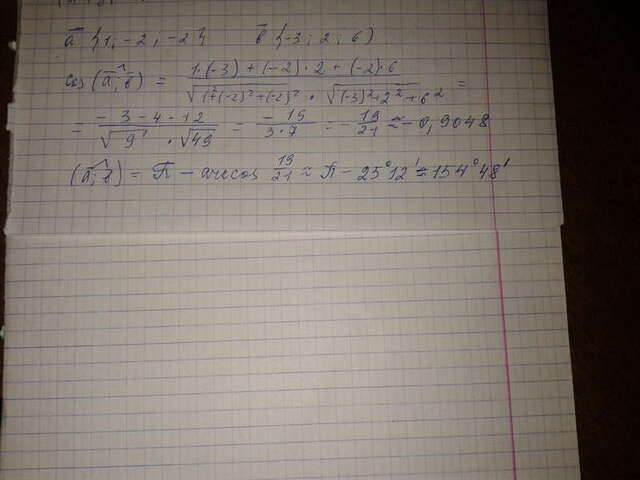 a⃗ {1; -2; -2} b⃗ {-3; 2; 6}
cos (a⃗;^b⃗) = 1·(-3) + (-2)·2 + (-2)·6 / √(1²+(-2)²+(-2)²) · √((-3)²+2²+6²) =
= -3-4-12 / √9 · √49 = -19 / 3·7 = -19/21 ≈ -0,9048
(a⃗;^b⃗) = π - arccos 19/21 ≈ π - 25°12' ≈ 154°48'